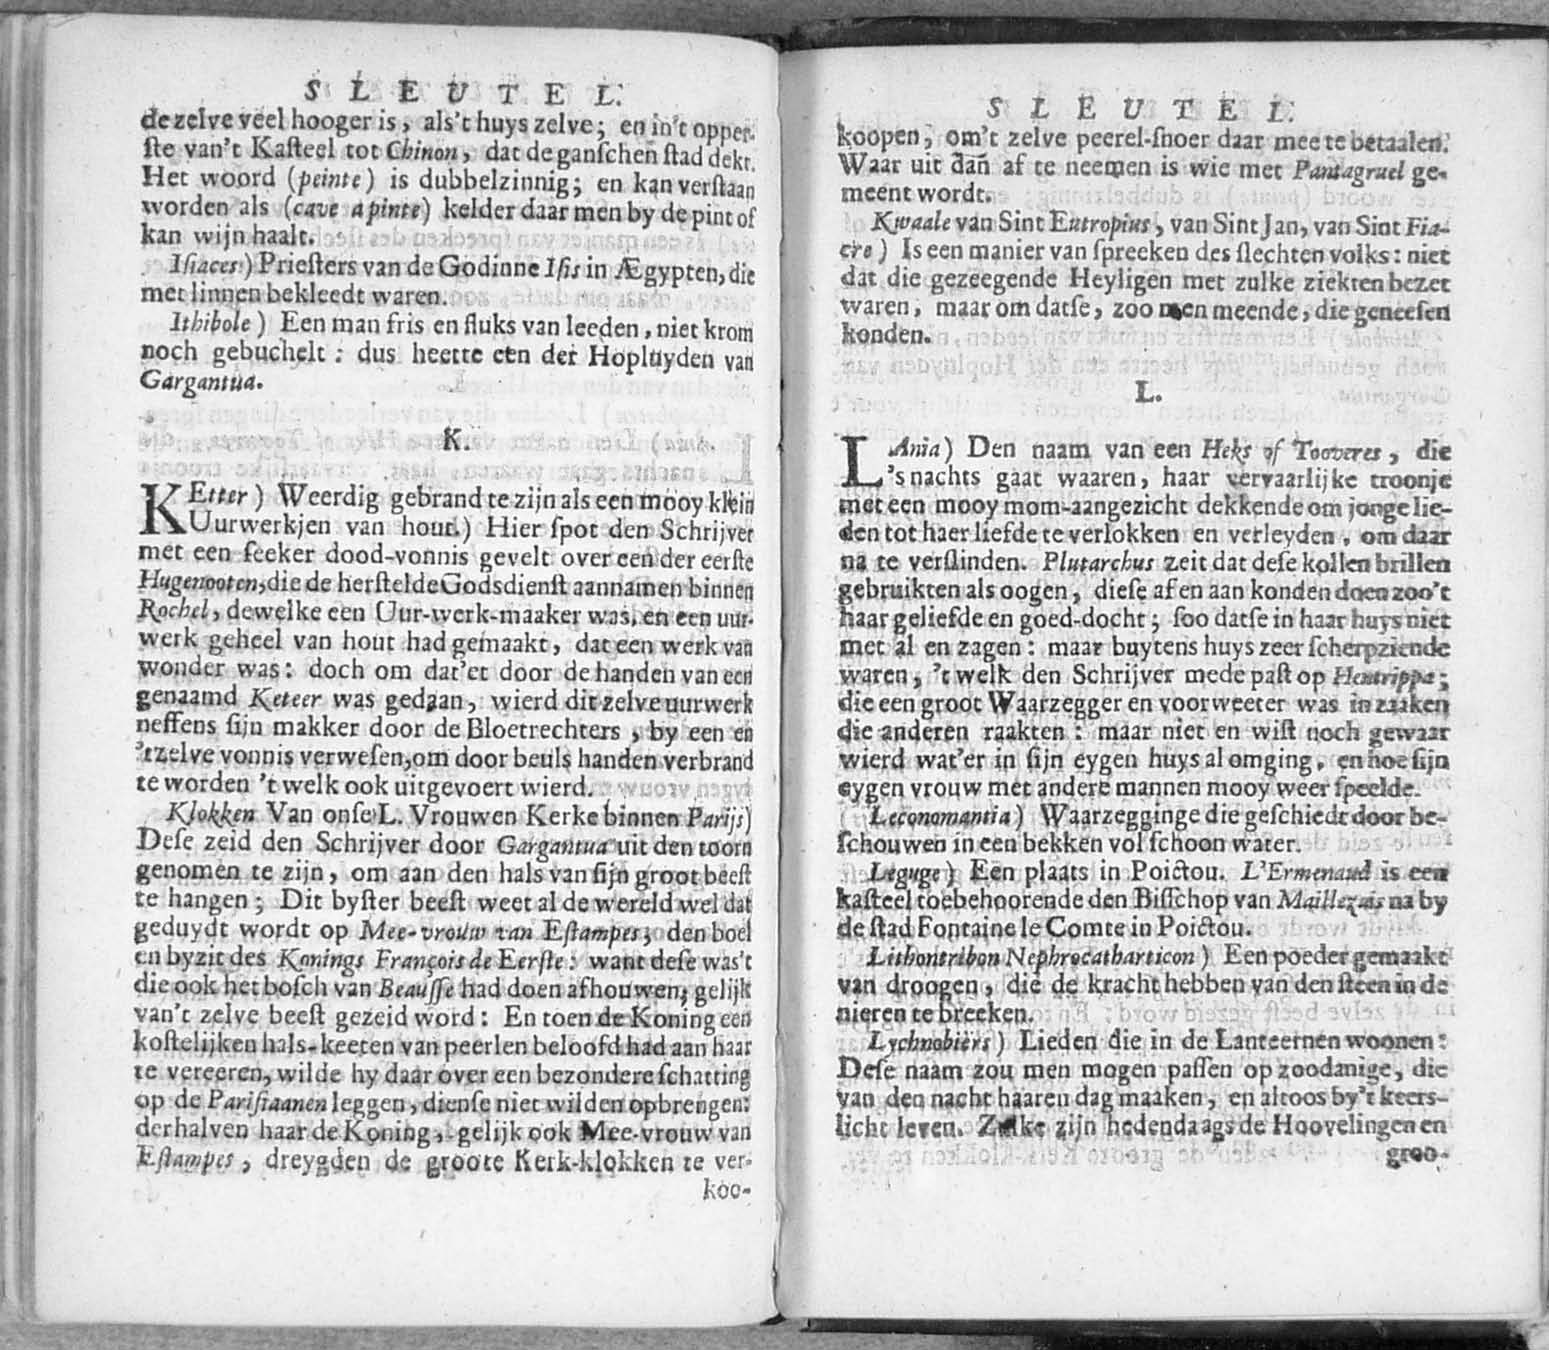 SLEUTEL.
dezelve veel hooger is, als't huys zelve; en in't opper-
ſte van't Kaſteel tot Chinon, dat de ganſchen ſtad dekt.
Het woord (peinte) is dubbelzinnig; en kan verſtaan
worden als (cave a pinte) kelder daar men by de pint of
kan wijn haalt.
Iſiaces) Prieſters van de Godinne Iſis in Ægypten, die
met linnen bekleedt waren.
Ithibole) Een man fris en fluks van leeden, niet krom
noch gebuchelt: dus heette een der Hopluyden van
Gargantua.
K.
KEtter) Weerdig gebrand te zijn als een mooy klein
Uurwerkjen van hout.) Hier ſpot den Schrijver
met een ſeeker dood-vonnis gevelt over een der eerſte
Hugenooten, die de herſtelde Godsdienſt aannamen binnen
Rochel, dewelke een Uur-werk-maaker was, en een uur-
werk geheel van hout had gemaakt, dat een werk van
wonder was: doch om dat'et door de handen van een
genaamd Keteer was gedaan, wierd dit zelve uurwerk
neffens ſijn makker door de Bloetrechters, by een en
'tzelve vonnis verweſen, om door beuls handen verbrand
te worden 't welk ook uitgevoert wierd.
Klokken Van onſe L. Vrouwen Kerke binnen Parijs)
Deſe zeid den Schrijver door Gargantua uit den toorn
genomen te zijn, om aan den hals van ſijn groot beeſt
te hangen; Dit byſter beeſt weet al de wereld wel dat
geduydt wordt op Mee-vrouw van Eſtampes, den boel
en byzit des Konings François de Eerſte: want deſe was't
die ook het boſch van Beauſſe had doen afhouwen, gelijk
van't zelve beeſt gezeid word: En toen de Koning een
koſtelijken hals-keeten van peerlen beloofd had aan haar
te vereeren, wilde hy daar over een bezondere ſchatting
op de Pariſiaanen leggen, dienſe niet wilden opbrengen:
derhalven haar de Koning, gelijk ook Mee-vrouw van
Eſtampes, dreygden de groote Kerk-klokken te ver-
koo-
SLEUTEL.
koopen, om't zelve peerel-ſnoer daar mee te betaalen.
Waar uit dan af te neemen is wie met Pantagruel ge-
meent wordt.
Kwaale van Sint Eutropius, van Sint Jan, van Sint Fia-
cre) Is een manier van ſpreeken des ſlechten volks: niet
dat die gezeegende Heyligen met zulke ziekten bezet
waren, maar om datſe, zoo men meende, die geneeſen
konden.
L.
LAnia) Den naam van een Heks of Tooveres, die
's nachts gaat waaren, haar vervaarlijke troonje
met een mooy mom-aangezicht dekkende om jonge lie-
den tot haer liefde te verlokken en verleyden, om daar
na te verſlinden. Plutarchus zeit dat deſe kollen brillen
gebruikten als oogen, dieſe af en aan konden doen zoo't
haar geliefde en goed-docht; ſoo datſe in haar huys niet
met al en zagen: maar buytens huys zeer ſcherpziende
waren, 't welk den Schrijver mede paſt op Hentrippa;
die een groot Waarzegger en voorweeter was in zaaken
die anderen raakten: maar niet en wiſt noch gewaar
wierd wat'er in ſijn eygen huys al omging, en hoe ſijn
eygen vrouw met andere mannen mooy weer ſpeelde.
Leconomantia) Waarzegginge die geſchiedt door be-
ſchouwen in een bekken vol ſchoon water.
Leguge) Een plaats in Poictou. L'Ermenaud is een
kaſteel toebehoorende den Biſſchop van Maillezais na by
de ſtad Fontaine le Comte in Poictou.
Lithontribon Nephrocatharticon) Een poeder gemaakt
van droogen, die de kracht hebben van den ſteen in de
nieren te breeken.
Lychnobiërs) Lieden die in de Lanteernen woonen:
Deſe naam zou men mogen paſſen op zoodanige, die
van den nacht haaren dag maaken, en altoos by't keers-
licht leven. Zulke zijn hedendaags de Hoovelingen en
groo-